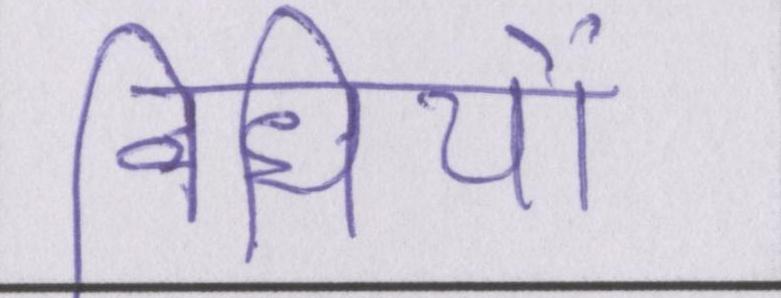 विधियों